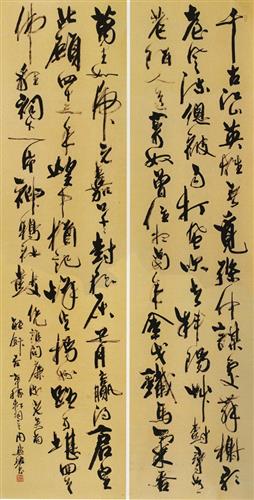 千古江山英雄無覓孫仲謀處舞榭歌
臺風流總被雨打風吹去斜陽草樹尋常
巷陌人道寄奴曾住想當年金戈鐵馬氣吞
萬里如虎元嘉草草封狼居胥贏得倉皇
北顧四十三年望中猶記烽火揚州路可堪回首
佛貍祠下一片神鴉社鼓憑誰問廉頗老矣尚
能飯否辛稼軒詞